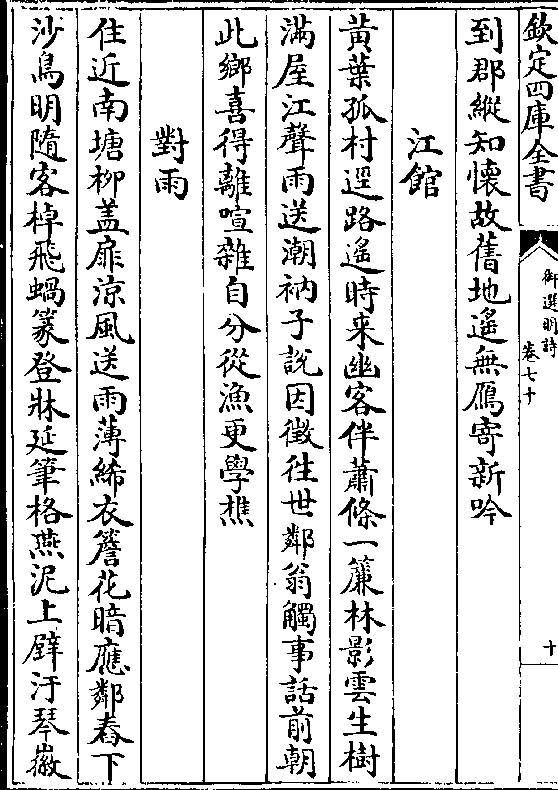 欽定四庫全書
御選明詩
卷七十
十
到郡縱知懷故舊地遙無鴈寄新吟
江館
黃葉孤村逕路遙時来幽客伴蕭條一簾林影雲生樹
滿屋江聲雨送潮衲子說因徴往世鄰翁觸事話前朝
此鄉喜得離喧雜自分從漁更學樵
對雨
住近南塘柳盖扉涼風送雨薄絺衣簷花暗應鄰舂下
沙鳥明隨客棹飛蝸篆登牀延筆格燕泥上壁汙琴徽